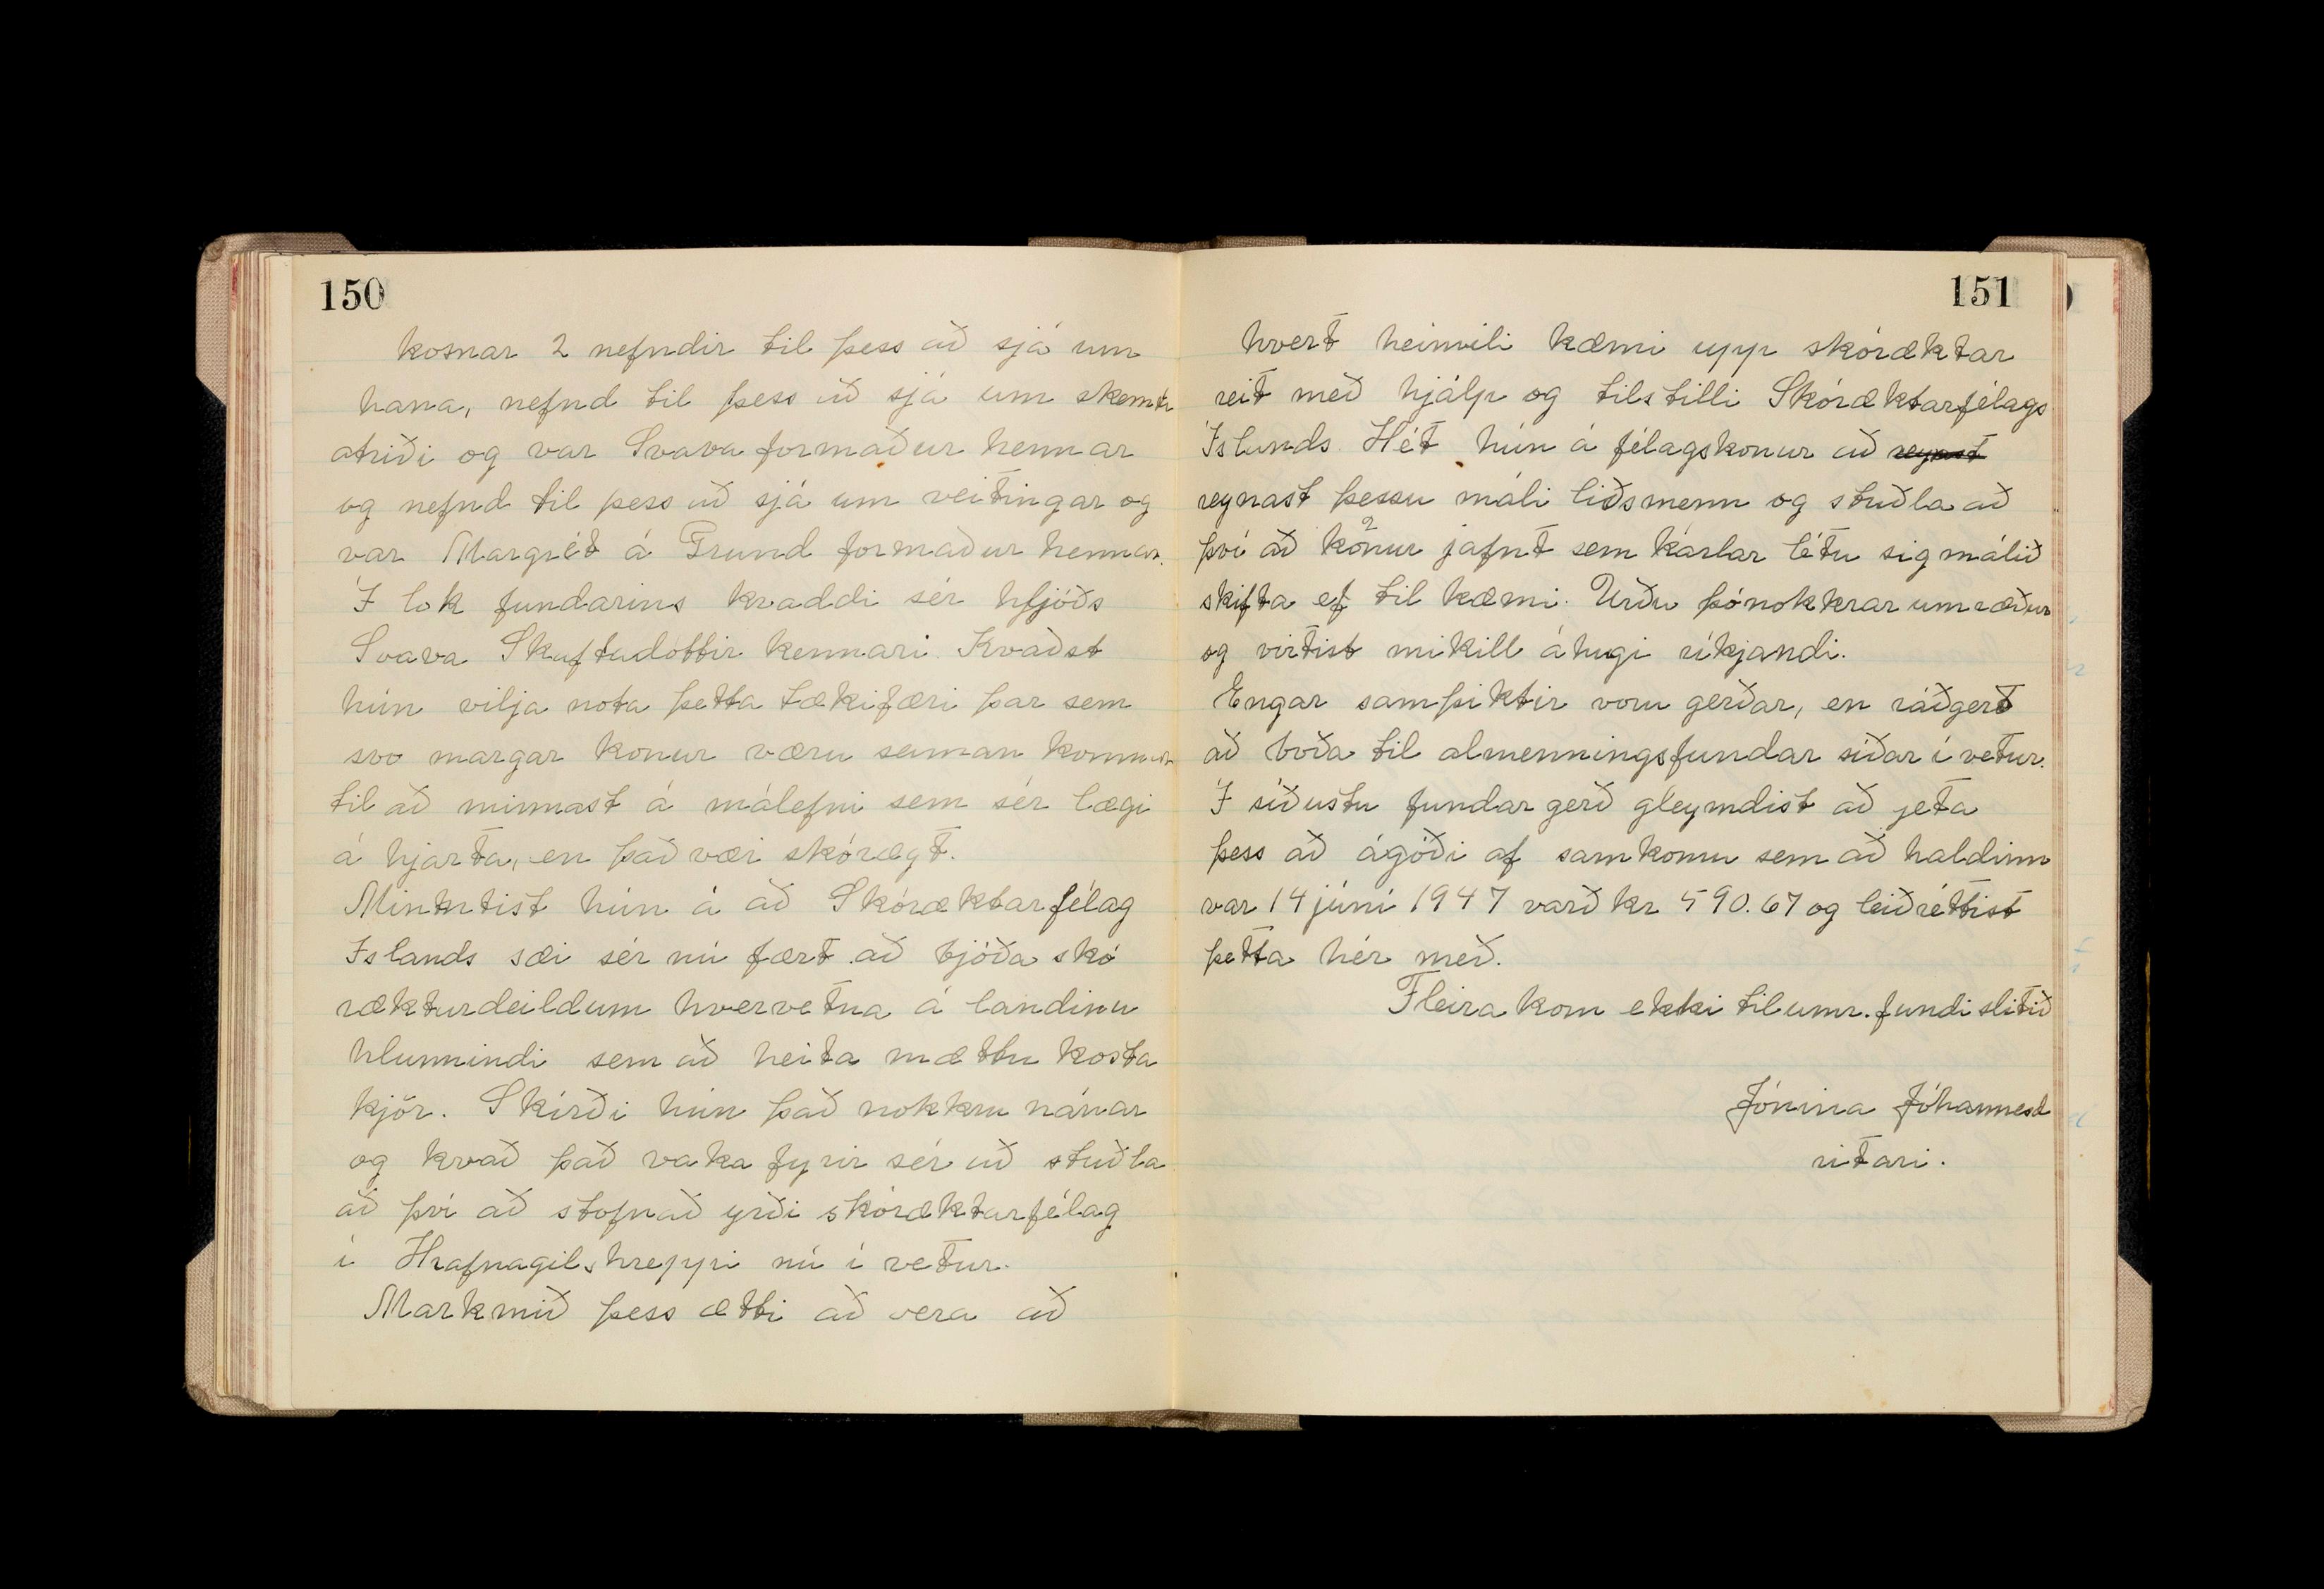 150
kosnar 2 nefndir til þess að sjá um
hana, nefnd til þess að sjá um skemti
atriði og var Svava formaður hennar
og nefnd til þess að sjá um veitingar og
var Margrét á Grund formaður hennar.
Í lok fundarins kvaddi sér hljóðs
Svava Skaftadóttir kennari. Kvaðst
hún vilja nota þetta tækifæri þar sem
svo margar konur væru saman komnar
til að minnast á málefni sem sér lægi
á hjarta, en það væri skórægt.
Mintntist hún á að Skóræktarfélag
Islands sæi sér nú fært að bjóða skó
ræktardeildum hvervetna á landinu
hlunnindi sem að heita mættu kosta
kjör. Skírði hún það nokkru nánar
og kvað það vaka fyrir sér að stuðla
að því að stofnað yrði skóræktarfélag
í Hrafnagilshreppi nú í vetur.
Markmið þess ætti að vera að
151
hvert heimili kæmi upp skóræktar
reit með hjálp og tilstilli Skóræktarfélags
Íslands. Hét hún á félagskonur að reynst
reynast þessu máli liðsmenn og stuðla að
því að konur jafnt sem karlar létu sig málið
skifta ef til kæmi. Urðu þónokkrar umræður
og virtist mikill áhugi ríkjandi.
Engar samþiktir voru gerðar, en ráðgert
að boða til almenningsfundar síðar í vetur.
Í síðustu fundargerð gleymdist að geta
þess að ágóði af samkomu sem að haldinn
var 14 júní 1947 varð kr 590.67 og leiðréttist
þetta hér með.
Fleira kom ekki til umr. fundi slitið
Jónína Jóhannesd
ritari.